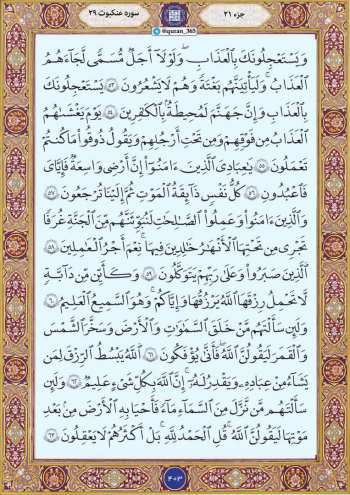 جزء ۲۱
@quran_365
سوره عنکبوت ۲۹
وَيَسْتَعْجِلُونَكَ بِالْعَذَابِ ۚ وَلَوْلَا أَجَلٌ مُّسَمًّى لَّجَاءَهُمُ
الْعَذَابُ ۚ وَلَيَأْتِيَنَّهُم بَغْتَةً وَهُمْ لَا يَشْعُرُونَ ۝٥٣ يَسْتَعْجِلُونَكَ
بِالْعَذَابِ وَإِنَّ جَهَنَّمَ لَمُحِيطَةٌ بِالْكَافِرِينَ ۝٥٤ يَوْمَ يَغْشَىٰهُمُ
الْعَذَابُ مِن فَوْقِهِمْ وَمِن تَحْتِ أَرْجُلِهِمْ وَيَقُولُ ذُوقُوا مَا كُنتُمْ
تَعْمَلُونَ ۝٥٥ يَٰعِبَادِيَ الَّذِينَ ءَامَنُوٓا إِنَّ أَرْضِي وَٰسِعَةٌ فَإِيَّٰيَ
فَاعْبُدُونِ ۝٥٦ كُلُّ نَفْسٍ ذَآئِقَةُ الْمَوْتِ ۖ ثُمَّ إِلَيْنَا تُرْجَعُونَ ۝٥٧
وَالَّذِينَ ءَامَنُوا وَعَمِلُوا الصَّٰلِحَٰتِ لَنُبَوِّئَنَّهُم مِّنَ الْجَنَّةِ غُرَفًا
تَجْرِي مِن تَحْتِهَا الْأَنْهَٰرُ خَٰلِدِينَ فِيهَا ۚ نِعْمَ أَجْرُ الْعَٰمِلِينَ ۝٥٨
الَّذِينَ صَبَرُوا وَعَلَىٰ رَبِّهِمْ يَتَوَكَّلُونَ ۝٥٩ وَكَأَيِّن مِّن دَآبَّةٍ
لَّا تَحْمِلُ رِزْقَهَا اللَّهُ يَرْزُقُهَا وَإِيَّاكُمْ ۚ وَهُوَ السَّمِيعُ الْعَلِيمُ ۝٦٠
وَلَئِن سَأَلْتَهُم مَّنْ خَلَقَ السَّمَٰوَٰتِ وَالْأَرْضَ وَسَخَّرَ الشَّمْسَ
وَالْقَمَرَ لَيَقُولُنَّ اللَّهُ ۖ فَأَنَّىٰ يُؤْفَكُونَ ۝٦١ اللَّهُ يَبْسُطُ الرِّزْقَ لِمَن
يَشَآءُ مِنْ عِبَادِهِ وَيَقْدِرُ لَهُ ۚ إِنَّ اللَّهَ بِكُلِّ شَيْءٍ عَلِيمٌ ۝٦٢ وَلَئِن
سَأَلْتَهُم مَّن نَّزَّلَ مِنَ السَّمَآءِ مَآءً فَأَحْيَا بِهِ الْأَرْضَ مِن بَعْدِ
مَوْتِهَا لَيَقُولُنَّ اللَّهُ ۚ قُلِ الْحَمْدُ لِلَّهِ ۚ بَلْ أَكْثَرُهُمْ لَا يَعْقِلُونَ ۝٦٣
۴۰۳